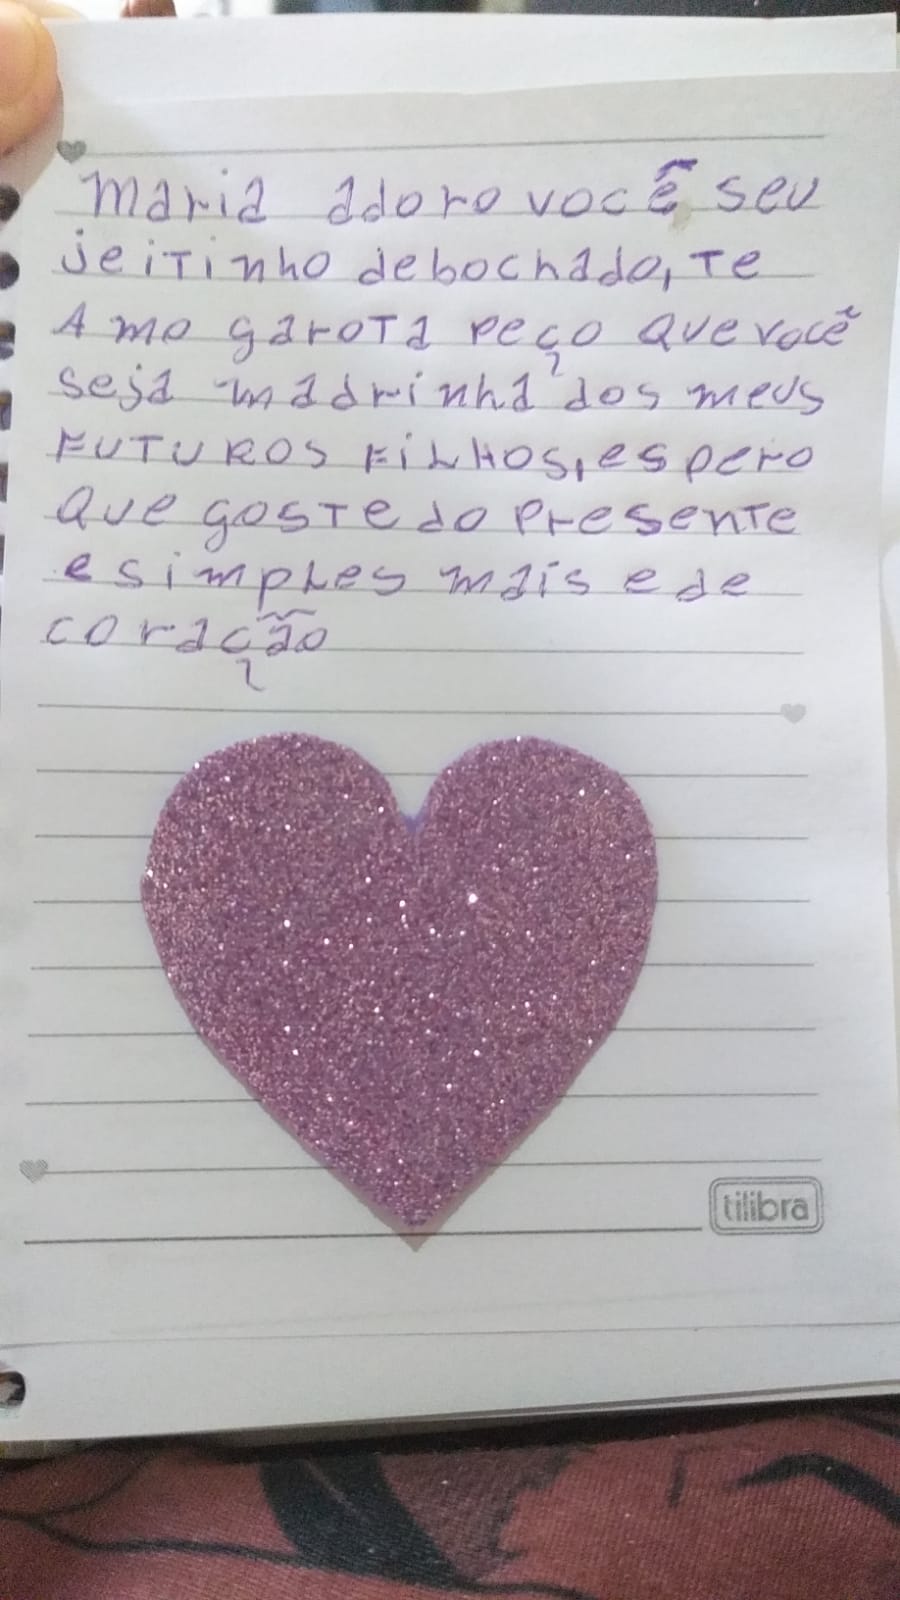 Maria adoro você seu
jeitinho debochado, te
Amo garota peço que você
seja madrinha dos meus
FUTUROS FiLHOS, espero
Que goste do presente
e simples mais e de
coração
tilibra